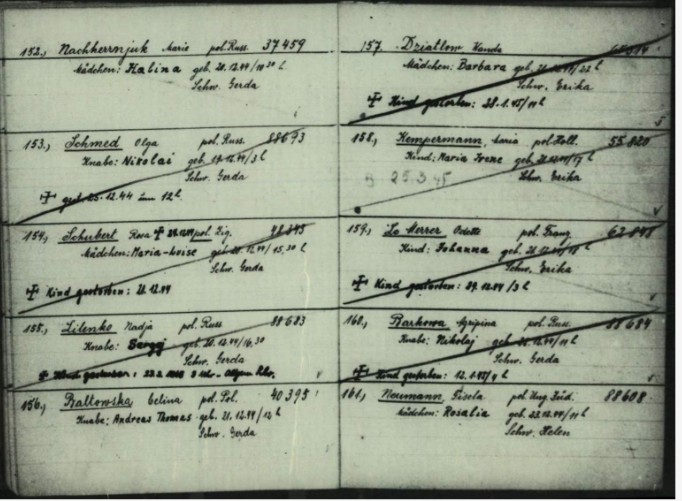 152., Nachkerrnjuk Marie pol. Russ. 37459
Mädchen: Halina geb. 21.12.44/11 30 h
Schw. Gerda
153., Schmed Olga pol. Russ. 88673
Knabe: Nikolai geb. 19.12.44/3 h
Schw. Gerda
25.12.44 um 12 h.
154., Schubert Rosa pol. Zig.
Mädchen: Maria-Loise geb. 20.12.44/15,30 h
Schw. Gerda
Kind gestorben: 21.12.44
155., Zilenko Nadja pol. Russ 88683
Knabe: Sergej geb. 20.12.44/16,30
Schw. Gerda
Kind gestorben:
156., Baltowska Celina pol. Pol. 40395
Knabe: Andreas Thomas geb. 21.12.44/12 h
Schw. Gerda
157. Dziatlow Wanda
Mädchen: Barbara geb. 21.12.44/22 h
Schw. Erika
Kind gestorben: 28.1.45/11 h
158., Kempermann, Maria pol. Holl. 55820
Kind: Maria Irene geb.
Schw. Erika
25.3.45
159., Le Merrer Odette pol. Franz 62848
Kind: Johanna geb.
Schw. Erika
Kind gestorben: /3 h
160., Barkowa Agripina pol. Russ. 88684
Knabe: Nikolej geb. 21.12.44/11 h
Schw. Gerda
Kind gestorben: 12.1.45/9 h
161., Neumann, Gisela pol. Ung. Jüd. 88608
Mädchen: Rosalia geb. 22.12.44/11 h
Schw. Helen